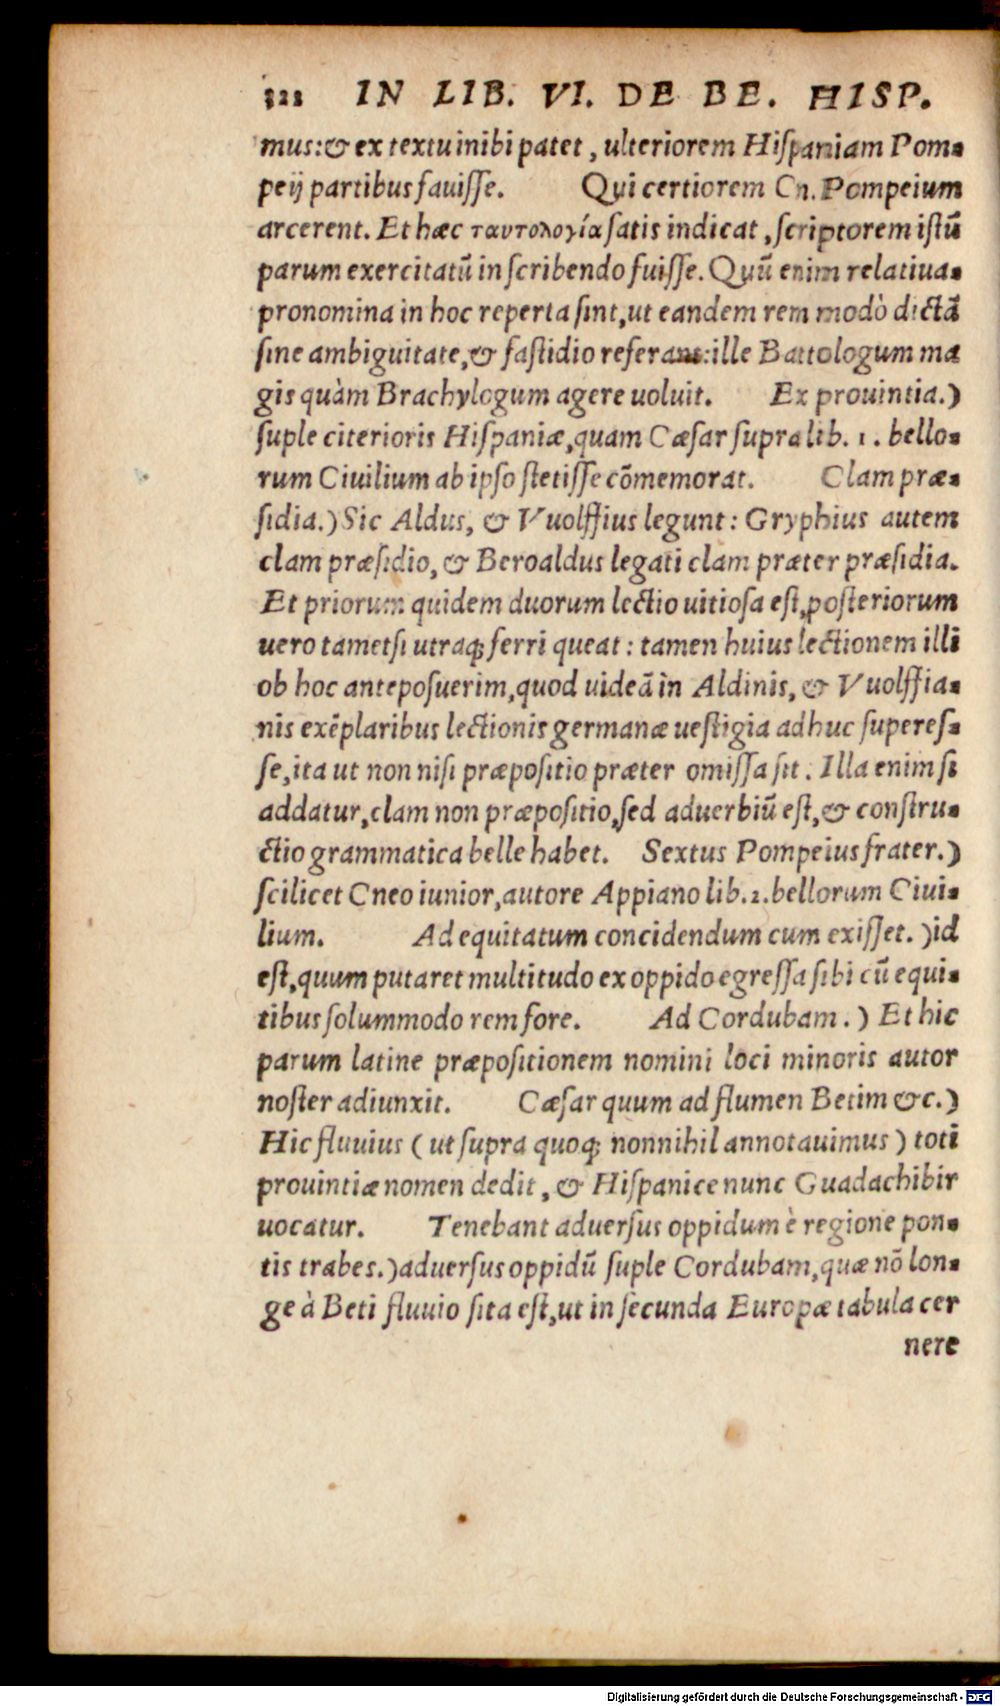 322 IN LIB. VI. DE BE. HISP.
mus:& ex textu inibi patet, ulteriorem Hiſpaniam Pom-
peij partibus fauiſſe. Qui certiorem Cn. Pompeium
arcerent. Et hæc ταυτολογία ſatis indicat, ſcriptorem iſtū
parum exercitatū in ſcribendo fuiſſe. Quū enim relatiua-
pronomina in hoc reperta ſint,ut eandem rem modò dictā
ſine ambiguitate,& faſtidio referant:ille Battologum ma
gis quàm Brachylogum agere uoluit. Ex prouintia.)
ſuple citerioris Hiſpaniæ,quam Cæſar ſupra lib. 1. bello-
rum Ciuilium ab ipſo ſtetiſſe cōmemorat. Clam præ-
ſidia.) Sic Aldus, & Vuolffius legunt: Gryphius autem
clam præſidio, & Beroaldus legati clam præter præſidia.
Et priorum quidem duorum lectio uitioſa eſt,poſteriorum
uero tametſi utraq; ferri queat: tamen huius lectionem illi
ob hoc antepoſuerim,quod uideā in Aldinis, & Vuolffia-
nis exēplaribus lectionis germanæ ueſtigia adhuc ſupereſ-
ſe,ita ut non niſi præpoſitio præter omiſſa ſit. Illa enim ſi
addatur,clam non præpoſitio,ſed aduerbiū eſt,& conſtru-
ctio grammatica belle habet. Sextus Pompeius frater.)
ſcilicet Cneo iunior,autore Appiano lib.2.bellorum Ciui-
lium. Ad equitatum concidendum cum exiſſet. )id
eſt,quum putaret multitudo ex oppido egreſſa ſibi cū equi-
tibus ſolummodo rem fore. Ad Cordubam.) Et hic
parum latine præpoſitionem nomini loci minoris autor
noſter adiunxit. Cæſar quum ad flumen Betim &c.)
Hic fluuius (ut ſupra quoq; nonnihil annotauimus) toti
prouintiæ nomen dedit, & Hiſpanice nunc Guadachibir
uocatur. Tenebant aduerſus oppidum è regione pon-
tis trabes.)aduerſus oppidū ſuple Cordubam,quæ nō lon-
ge à Beti fluuio ſita eſt,ut in ſecunda Europæ tabula cer
nere
Digitalisierung gefördert durch die Deutsche Forschungsgemeinschaft - DFG